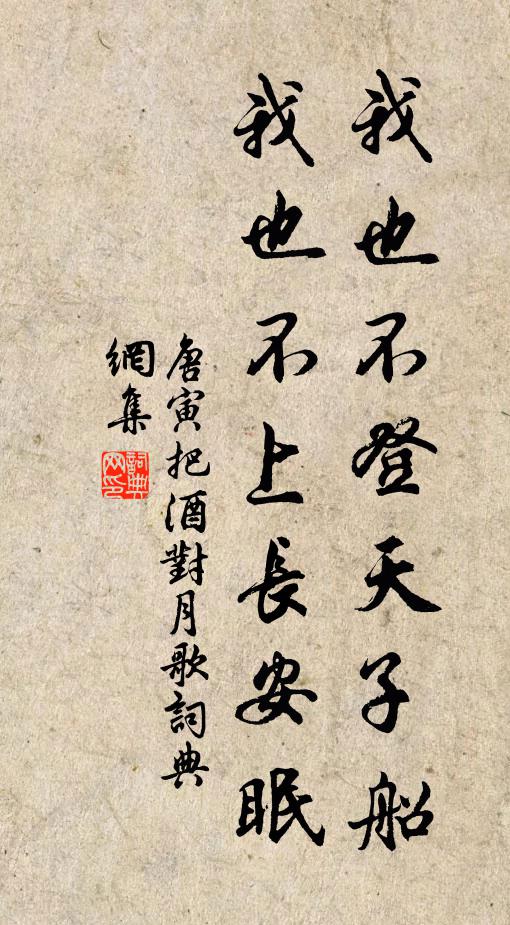 我也不登天子船
我也不上長安眠
唐寅把酒對月歌詞典
網集
詞典
网印